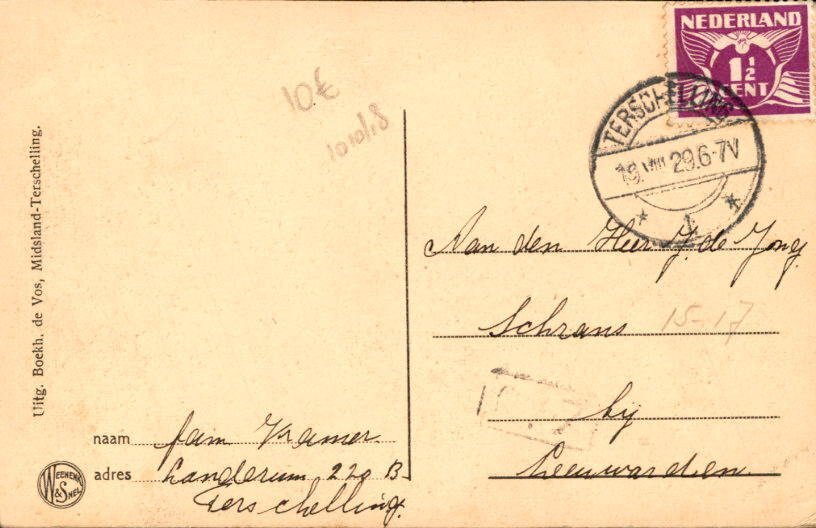 NEDERLAND
1½
CENT
TERSCHELLING
19 VIII 29.6-7V
1
10€
10/10/18
Aan den Heer J. de Jong.
Schrans 15-17
bij
Leeuwarden.
Uitg. Boekh. de Vos, Midsland-Terschelling.
naam fam Kramer.
adres Landerum 220 B
Terschelling.
WEENENK & SNEL